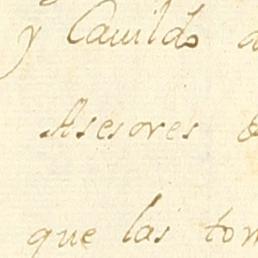 y Cauildo
Asesores
que las